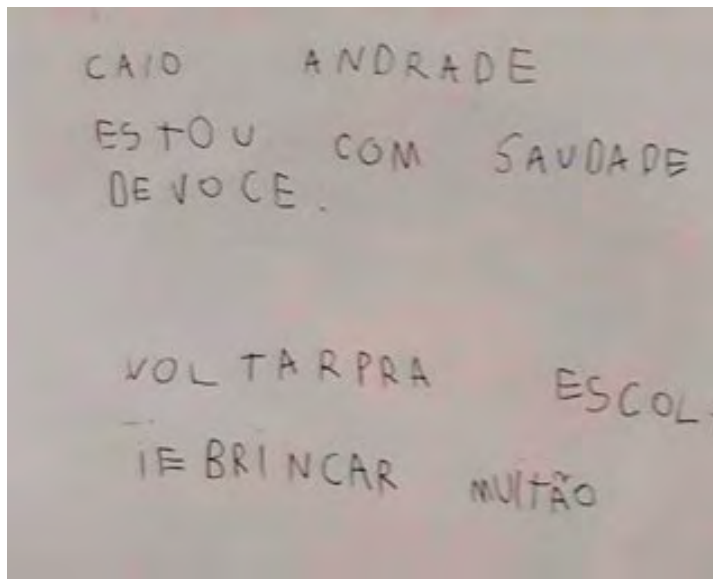 CAIO ANDRADE
ESTOU COM SAUDADE
DEVOCE.
VOLTARPRA ESCOL
IEBRINCAR MUITÃO